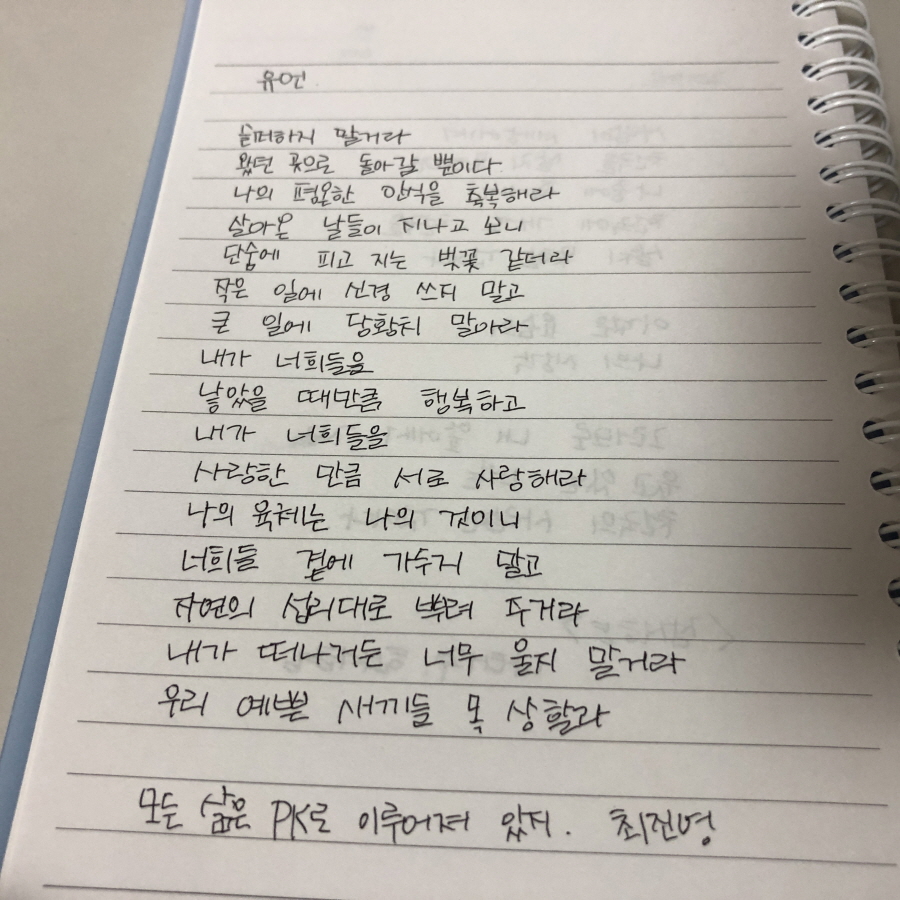 유언.
슬퍼하지 말거라
왔던 곳으로 돌아갈 뿐이다
나의 평온한 안식을 축복해라
살아온 날들이 지나고 보니
단숨에 피고 지는 벚꽃 같더라
작은 일에 신경 쓰지 말고
큰 일에 당황치 말아라
내가 너희들을
낳았을 때만큼 행복하고
내가 너희들을
사랑한 만큼 서로 사랑해라
나의 육체는 나의 것이니
너희들 곁에 가두지 말고
자연의 섭리대로 뿌려 주거라
내가 떠나거든 너무 울지 말거라
우리 예쁜 새끼들 목 상할라
모든 삶은 PK로 이루어져 있지. 최진영